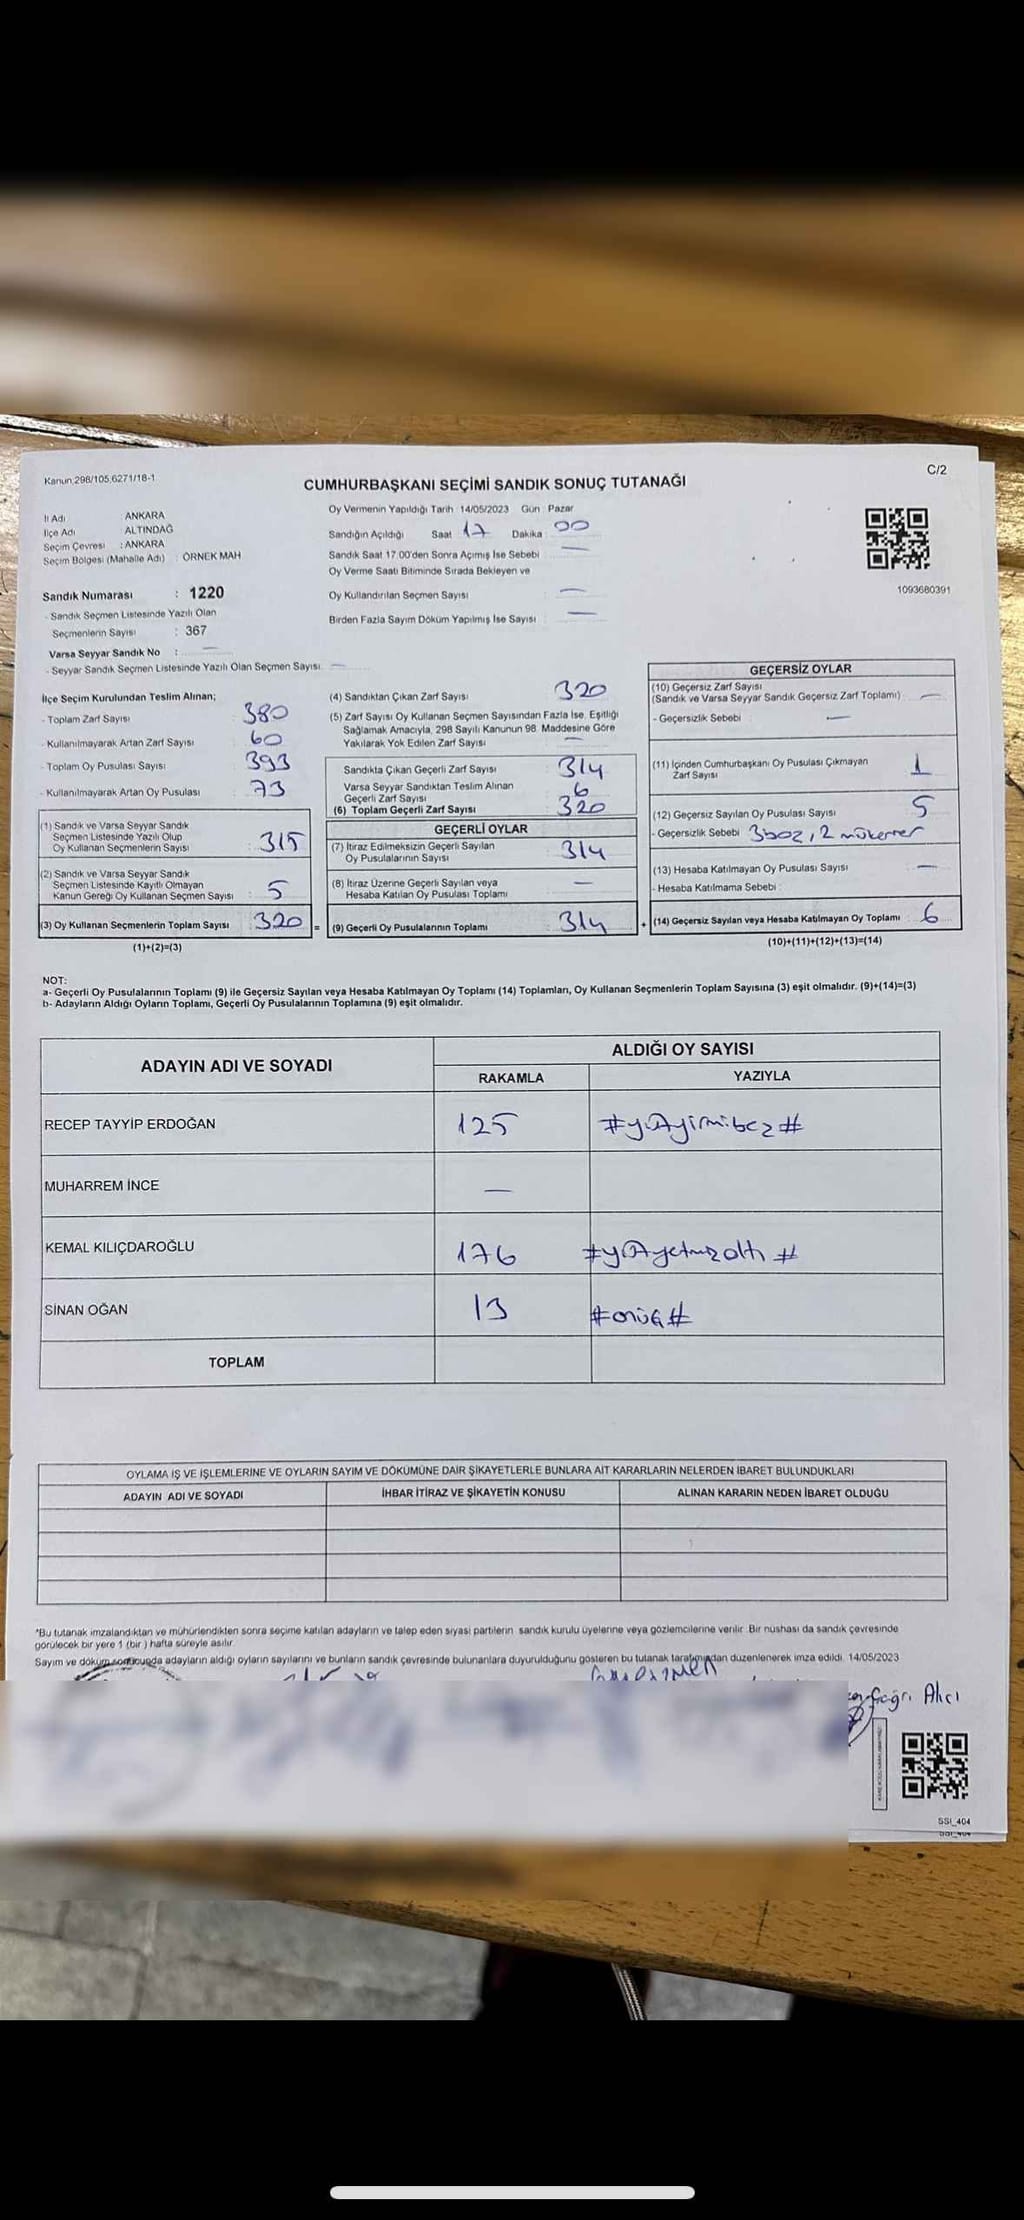 Kanun,298/105,6271/18-1
C/2
CUMHURBAŞKANI SEÇİMİ SANDIK SONUÇ TUTANAĞI
İl Adı ANKARA
İlçe Adı ALTINDAĞ
Seçim Çevresi : ANKARA
Seçim Bölgesi (Mahalle Adı) : ÖRNEK MAH
Sandık Numarası : 1220
- Sandık Seçmen Listesinde Yazılı Olan
Seçmenlerin Sayısı : 367
Varsa Seyyar Sandık No : —
- Seyyar Sandık Seçmen Listesinde Yazılı Olan Seçmen Sayısı: —
Oy Vermenin Yapıldığı Tarih 14/05/2023 Gün Pazar
Sandığın Açıldığı Saat 17 Dakika : 00
Sandık Saat 17.00'den Sonra Açımış İse Sebebi —
Oy Verme Saati Bitiminde Sırada Bekleyen ve
Oy Kullandırılan Seçmen Sayısı : —
Birden Fazla Sayım Döküm Yapılmış İse Sayısı : —
1093680391
İlçe Seçim Kurulundan Teslim Alınan;
- Toplam Zarf Sayısı 380
- Kullanılmayarak Artan Zarf Sayısı 60
- Toplam Oy Pusulası Sayısı 393
- Kullanılmayarak Artan Oy Pusulası 73
(1) Sandık ve Varsa Seyyar Sandık
Seçmen Listesinde Yazılı Olup
Oy Kullanan Seçmenlerin Sayısı : 315
(2) Sandık ve Varsa Seyyar Sandık
Seçmen Listesinde Kayıtlı Olmayan
Kanun Gereği Oy Kullanan Seçmen Sayısı : 5
(3) Oy Kullanan Seçmenlerin Toplam Sayısı : 320 =
(1)+(2)=(3)
(4) Sandıktan Çıkan Zarf Sayısı 320
(5) Zarf Sayısı Oy Kullanan Seçmen Sayısından Fazla İse, Eşitliği
Sağlamak Amacıyla, 298 Sayılı Kanunun 98. Maddesine Göre
Yakılarak Yok Edilen Zarf Sayısı —
Sandıkta Çıkan Geçerli Zarf Sayısı 314
Varsa Seyyar Sandıktan Teslim Alınan
Geçerli Zarf Sayısı 6
(6) Toplam Geçerli Zarf Sayısı 320
GEÇERLİ OYLAR
(7) İtiraz Edilmeksizin Geçerli Sayılan
Oy Pusulalarının Sayısı : 314
(8) İtiraz Üzerine Geçerli Sayılan veya
Hesaba Katılan Oy Pusulası Toplamı : —
(9) Geçerli Oy Pusulalarının Toplamı : 314 +
GEÇERSİZ OYLAR
(10) Geçersiz Zarf Sayısı
(Sandık ve Varsa Seyyar Sandık Geçersiz Zarf Toplamı) —
- Geçersizlik Sebebi : —
(11) İçinden Cumhurbaşkanı Oy Pusulası Çıkmayan
Zarf Sayısı 1
(12) Geçersiz Sayılan Oy Pusulası Sayısı 5
- Geçersizlik Sebebi 3boz, 2 mükerrer
(13) Hesaba Katılmayan Oy Pusulası Sayısı —
- Hesaba Katılmama Sebebi :
(14) Geçersiz Sayılan veya Hesaba Katılmayan Oy Toplamı : 6
(10)+(11)+(12)+(13)=(14)
NOT:
a- Geçerli Oy Pusulalarının Toplamı (9) ile Geçersiz Sayılan veya Hesaba Katılmayan Oy Toplamı (14) Toplamları, Oy Kullanan Seçmenlerin Toplam Sayısına (3) eşit olmalıdır. (9)+(14)=(3)
b- Adayların Aldığı Oyların Toplamı, Geçerli Oy Pusulalarının Toplamına (9) eşit olmalıdır.
ADAYIN ADI VE SOYADI
ALDIĞI OY SAYISI
RAKAMLA YAZIYLA
RECEP TAYYİP ERDOĞAN 125 #yüzyirmibeş#
MUHARREM İNCE —
KEMAL KILIÇDAROĞLU 176 #yüzyetmişaltı#
SİNAN OĞAN 13 #onüç#
TOPLAM
OYLAMA İŞ VE İŞLEMLERİNE VE OYLARIN SAYIM VE DÖKÜMÜNE DAİR ŞİKAYETLERLE BUNLARA AİT KARARLARIN NELERDEN İBARET BULUNDUKLARI
ADAYIN ADI VE SOYADI İHBAR İTİRAZ VE ŞİKAYETİN KONUSU ALINAN KARARIN NEDEN İBARET OLDUĞU
*Bu tutanak imzalandıktan ve mühürlendikten sonra seçime katılan adayların ve talep eden siyasi partilerin sandık kurulu üyelerine veya gözlemcilerine verilir. Bir nüshası da sandık çevresinde
görülecek bir yere 1 (bir) hafta süreyle asılır.
Sayım ve döküm sonucunda adayların aldığı oyların sayılarını ve bunların sandık çevresinde bulunanlara duyurulduğunu gösteren bu tutanak tarafımızdan düzenlenerek imza edildi. 14/05/2023
Çağrı Alıcı
SSI_404